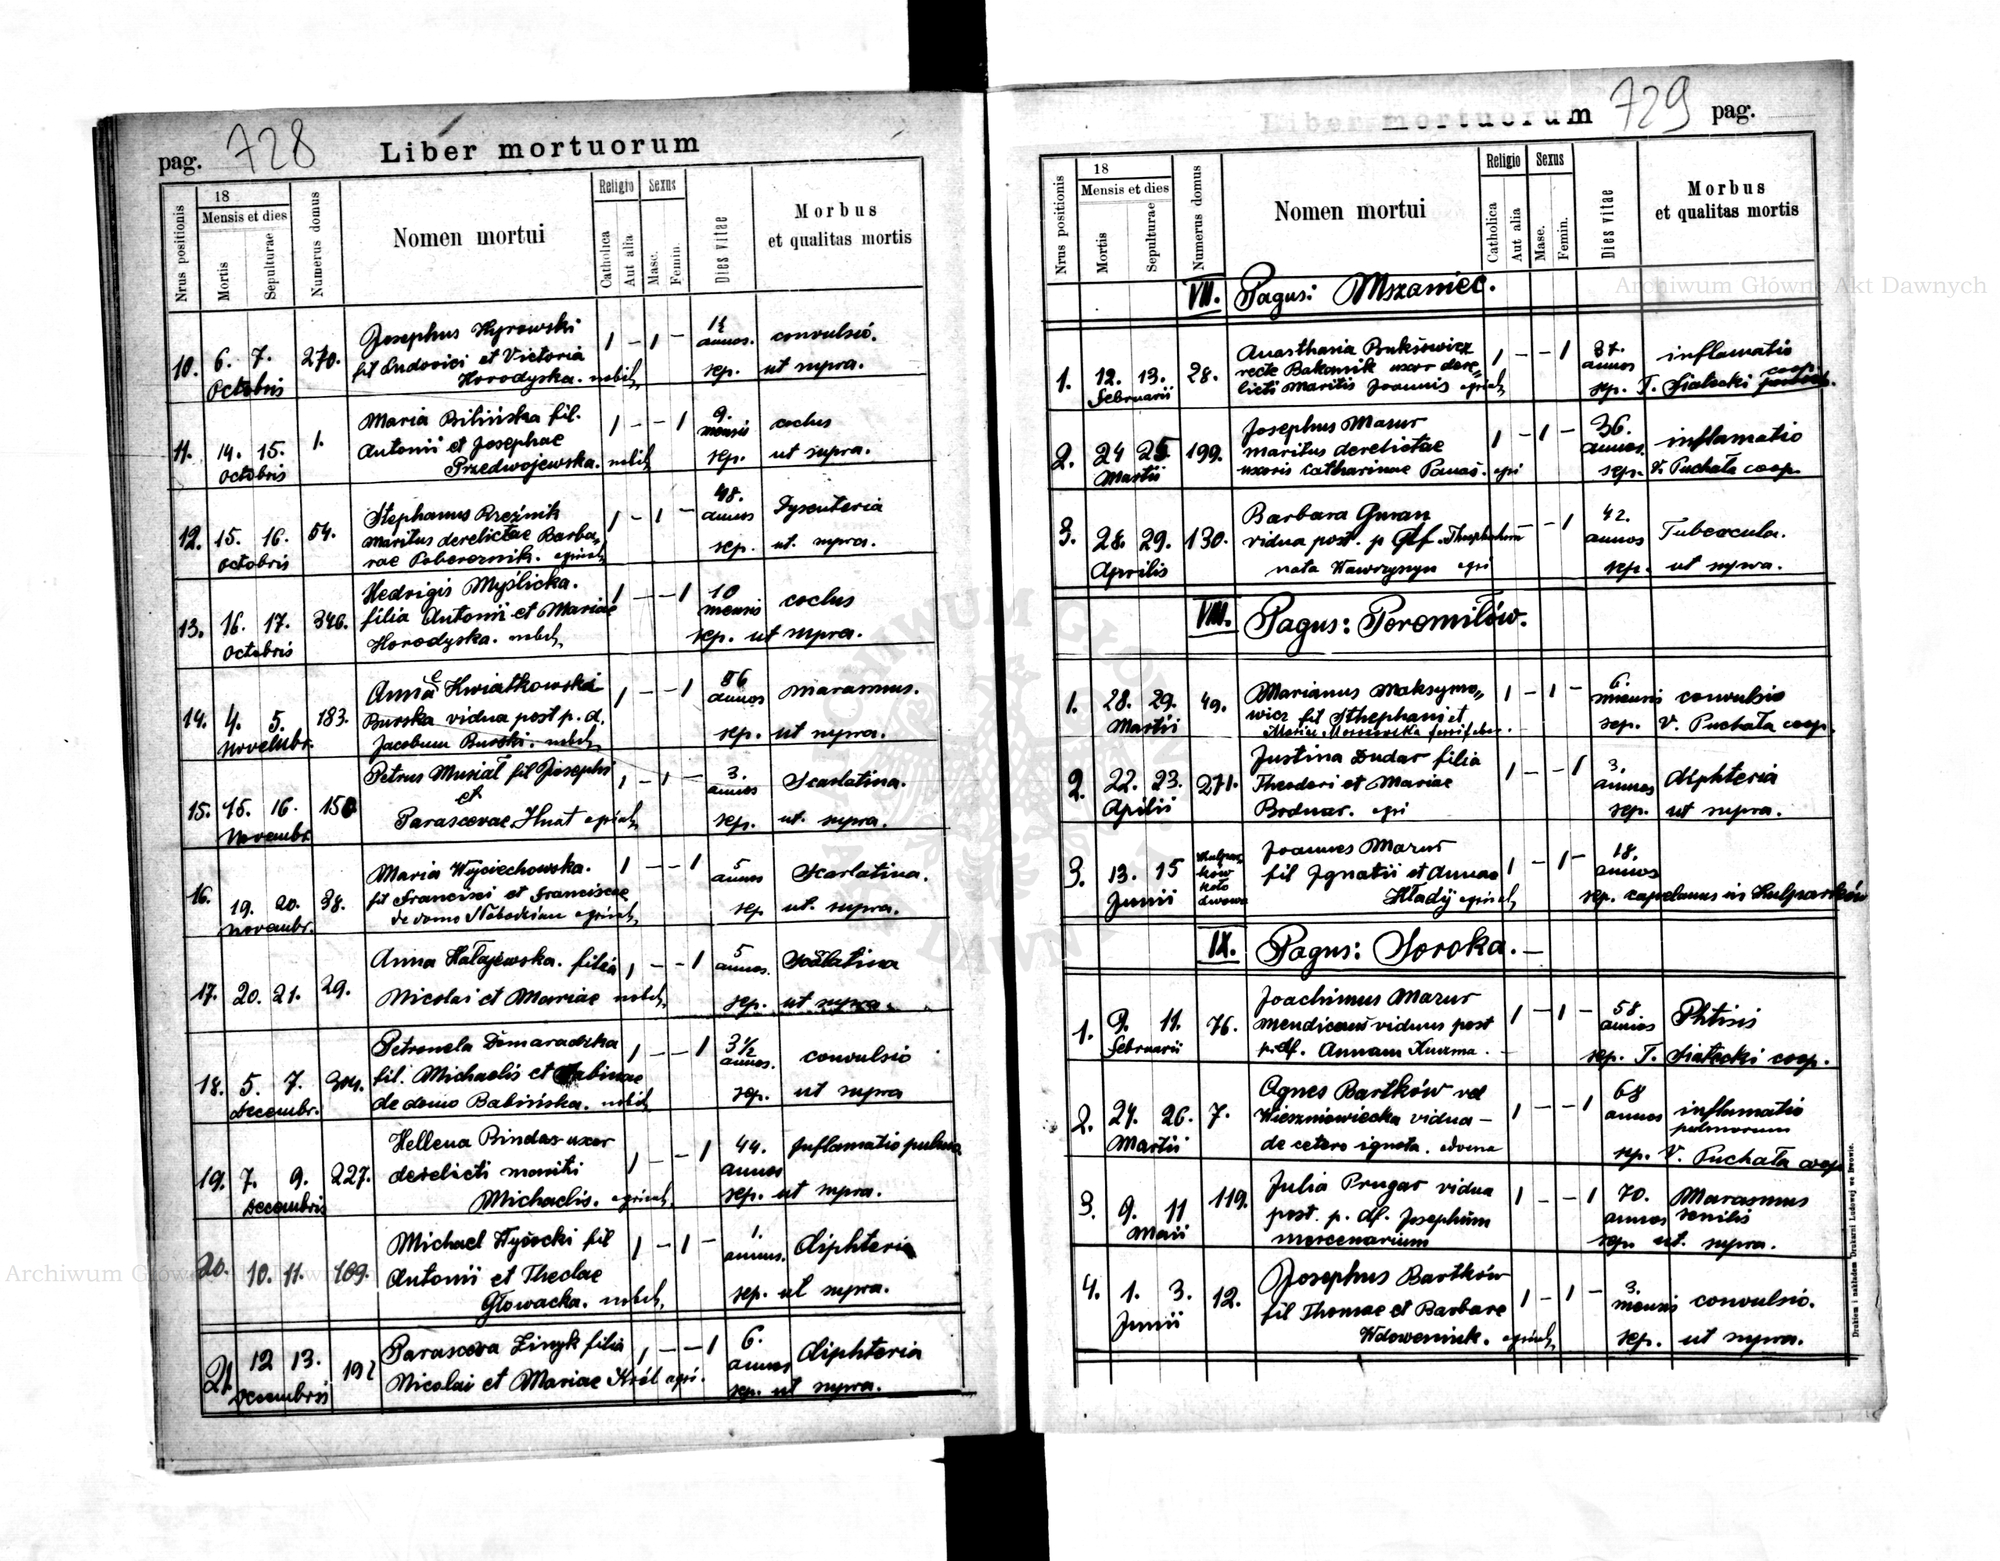 pag. 728 Liber mortuorum
Nrus positionis
18
Mensis et dies
Mortis
Sepulturae
Numerus domus
Nomen mortui
Religio
Catholica
Aut alia
Sexus
Masc.
Femin.
Dies vitae
Morbus
et qualitas mortis
10. 6. 7. Octobris 270.
Josephus Hyrowski
fil Ludovici et Victoria
Horodyska. nobil.
1 - 1 -
1½ annos. convulsió.
sep. ut supra.
11. 14. 15. Octobris 1.
Maria Bilińska fil.
Antonii et Josephae
Przedwojewska. nobil.
1 - - 1
9. mensis coclus
sep. ut supra.
12. 15. 16. Octobris 54.
Stephanus Rzeźnik
maritus derelictae Barba„
rae Poberoznik. agricol.
1 - 1 -
48. annos Dysenteria
sep. ut. supra.
13. 16. 17. Octobris 340.
Hedvigis Myślicka.
filia Antonii et Mariae
Horodyska. nobil.
1 - - 1
10 mensis coclus
sep. ut supra.
14. 4. 5. Novembr. 183.
Anna Kwiatkowska
Burska vidua post p. d.
Jacobum Burski. nobil.
1 - - 1
86 annos marasmus.
sep. ut supra.
15. 15. 16. Novembr. 150
Petrus Musiał fil Josephi
et
Parascevae Hnat agricol.
1 - 1 -
3. annos Scarlatina.
sep. ut. supra.
16. 19. 20. Novembr. 38.
Maria Wojciechowska.
fil Francisci et Franciscae
de domo Słobodzian agricol.
1 - - 1
5 annos Scarlatina.
sep ut. supra.
17. 20. 21. 29.
Anna Hałajewska. filia
Nicolai et Mariae nobil.
1 - - 1
5 annos. Scarlatina
sep. ut supra.
18. 5. 7. Decembr. 304.
Petronela Domaradzka
fil. Michaelis et Sabinae
de domo Babińska. nobil.
1 - - 1
3 ½ annos. convulsio
sep. ut supra
19. 7. 9. Decembris 227.
Hellena Bindas uxor
derelicti mariti
Michaelis. agricol.
1 - - 1
44. annos Inflamatio pulmo
sep. ut supra.
20. 10. 11. 109.
Michael Wysocki fil
Antonii et Theclae
Głowacka. nobil.
1 - 1 -
1. annus. diphteria
sep. ut supra.
21 12 13. Decembris 192
Parasceva Zinyk filia
Nicolai et Mariae Król agri.
1 - - 1
6. annos diphteria
sep. ut supra.
Liber mortuorum 729 pag.
Nrus positionis
18
Mensis et dies
Mortis
Sepulturae
Numerus domus
Nomen mortui
Religio
Catholica
Aut alia
Sexus
Masc.
Femin.
Dies vitae
Morbus
et qualitas mortis
VII. Pagus: Mszaniec.
1. 12. 13. Februarii 28.
Anasthasia Buksowicz
recte Bakownik uxor dere„
licti maritis Joannis agricol.
1 - - 1
37. annos inflamatio
sep. T. Siałecki coop.
2. 24 25 Martii 199.
Josephus Mazur
maritus derelictae
uxoris Catharinae Panas. agri
1 - 1 -
36. annos. inflamatio
sep. V. Puchała coop.
3. 28. 29. Aprilis 130.
Barbara Guran
vidua post. p
nata Wawrzyszyn agri
- - 1
42. annos Tubercula.
sep. ut supra.
VIII. Pagus: Poromilów.
1. 28. 29. Martii 49.
Marianus Maksymo„
wicz fil Sthephani et
1 - 1 -
6. mensis convulsio
sep. V. Puchała coop.
2. 22. 23. Aprilis 271.
Justina Dudar filia
Theodori et Mariae
Bodnar. agri
1 - - 1
3. annos diphteria
sep. ut supra.
3. 13. 15 Junii
Kulpar„
ków
koło
Lwowa
Joannes Mazur
fil Ignatii et Annae
Hładij agricol.
1 - 1 -
18. annos
sep. capelanus in Kulparków
IX. Pagus: Soroka.
1. 9. 11. Februarii 76.
Joachimus Mazur
mendicans viduus post
p. df. Annam Kuzma.
1 - 1 -
58 annos Phtisis
sep. T. Siałecki coop.
2. 24. 26. Martii 7.
Agnes Bartków vel
Wiszniowiecka vidua -
de cetero ignota.
1 - - 1
68 annos inflamatio
pulmorum
sep. V. Puchała coop
3. 9. 11 Maii 119.
Julia Prugar vidua
post. p. df. Josephum
mercenarium
1 - - 1
70. annos Marasmus
senilis
sep. ut. supra.
4. 1. 3. Junii 12.
Josephus Bartków
fil Thomae et Barbare
Wdoweniuk. agricol.
1 - 1 -
3. mensis convulsio.
sep. ut supra.
Drukiem i nakładem Drukarni Ludowej we Lwowie.
Archiwum Główne Akt Dawnych
ARCHIWUM GŁÓWNE AKT DAWNYCH